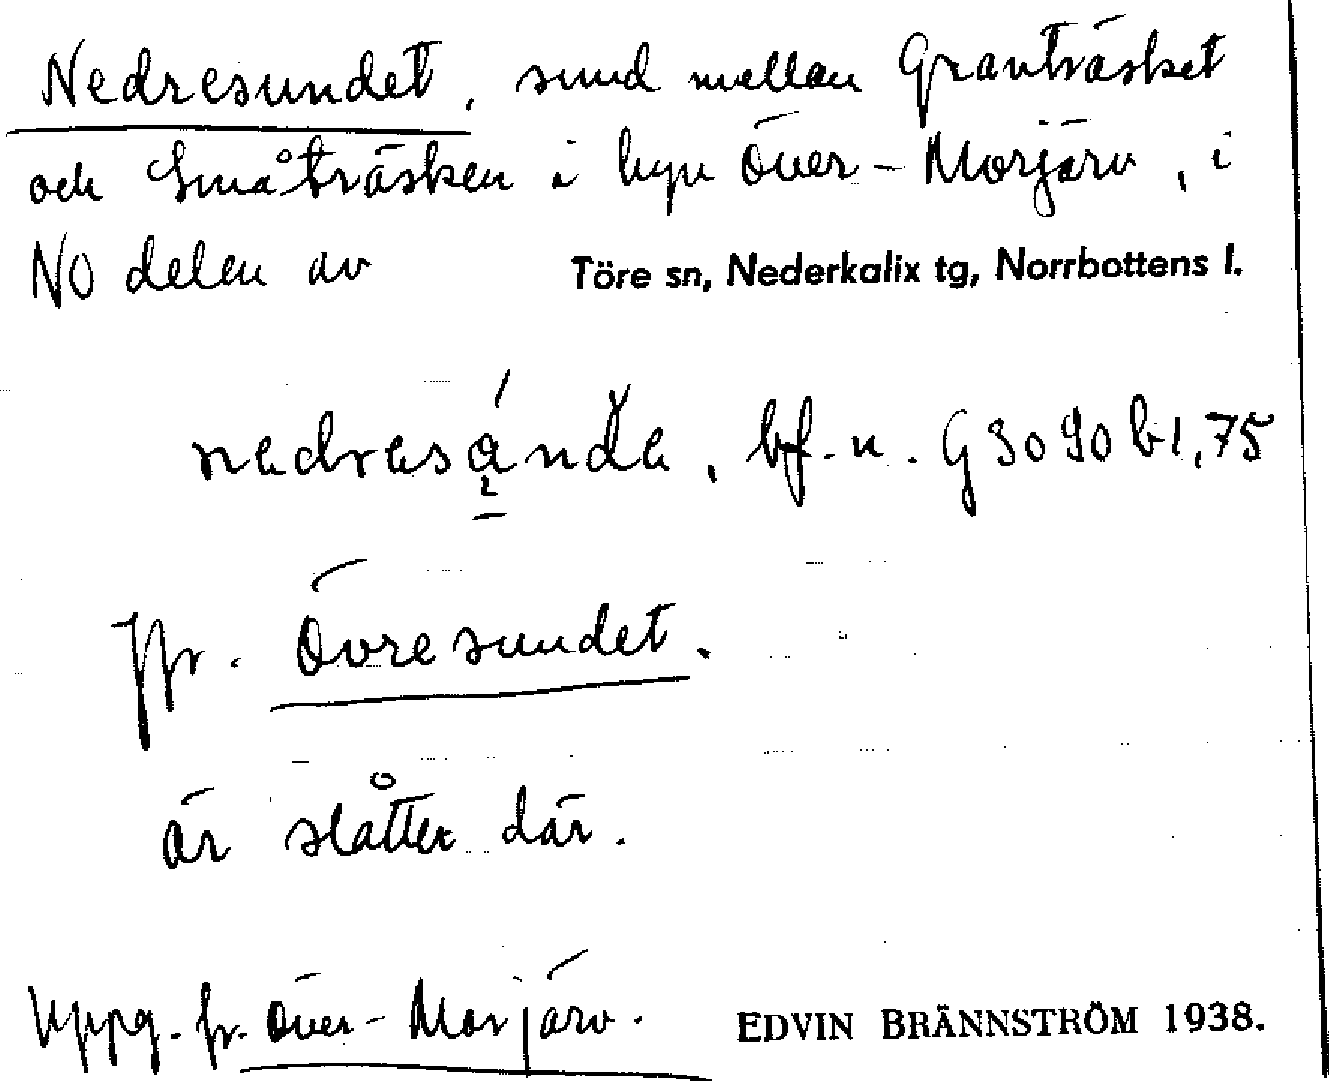 Nedresundet, sund mellan Granträsket
och Småträsken i byn Över-Morjärv, i
NO delen av Töre sn, Nederkalix tg, Norrbottens l.
bf. n. G 3090 b1,75
Jfr. Övre sundet.
är slåtter där.
Uppg. fr. Över-Morjärv. EDVIN BRÄNNSTRÖM 1938.